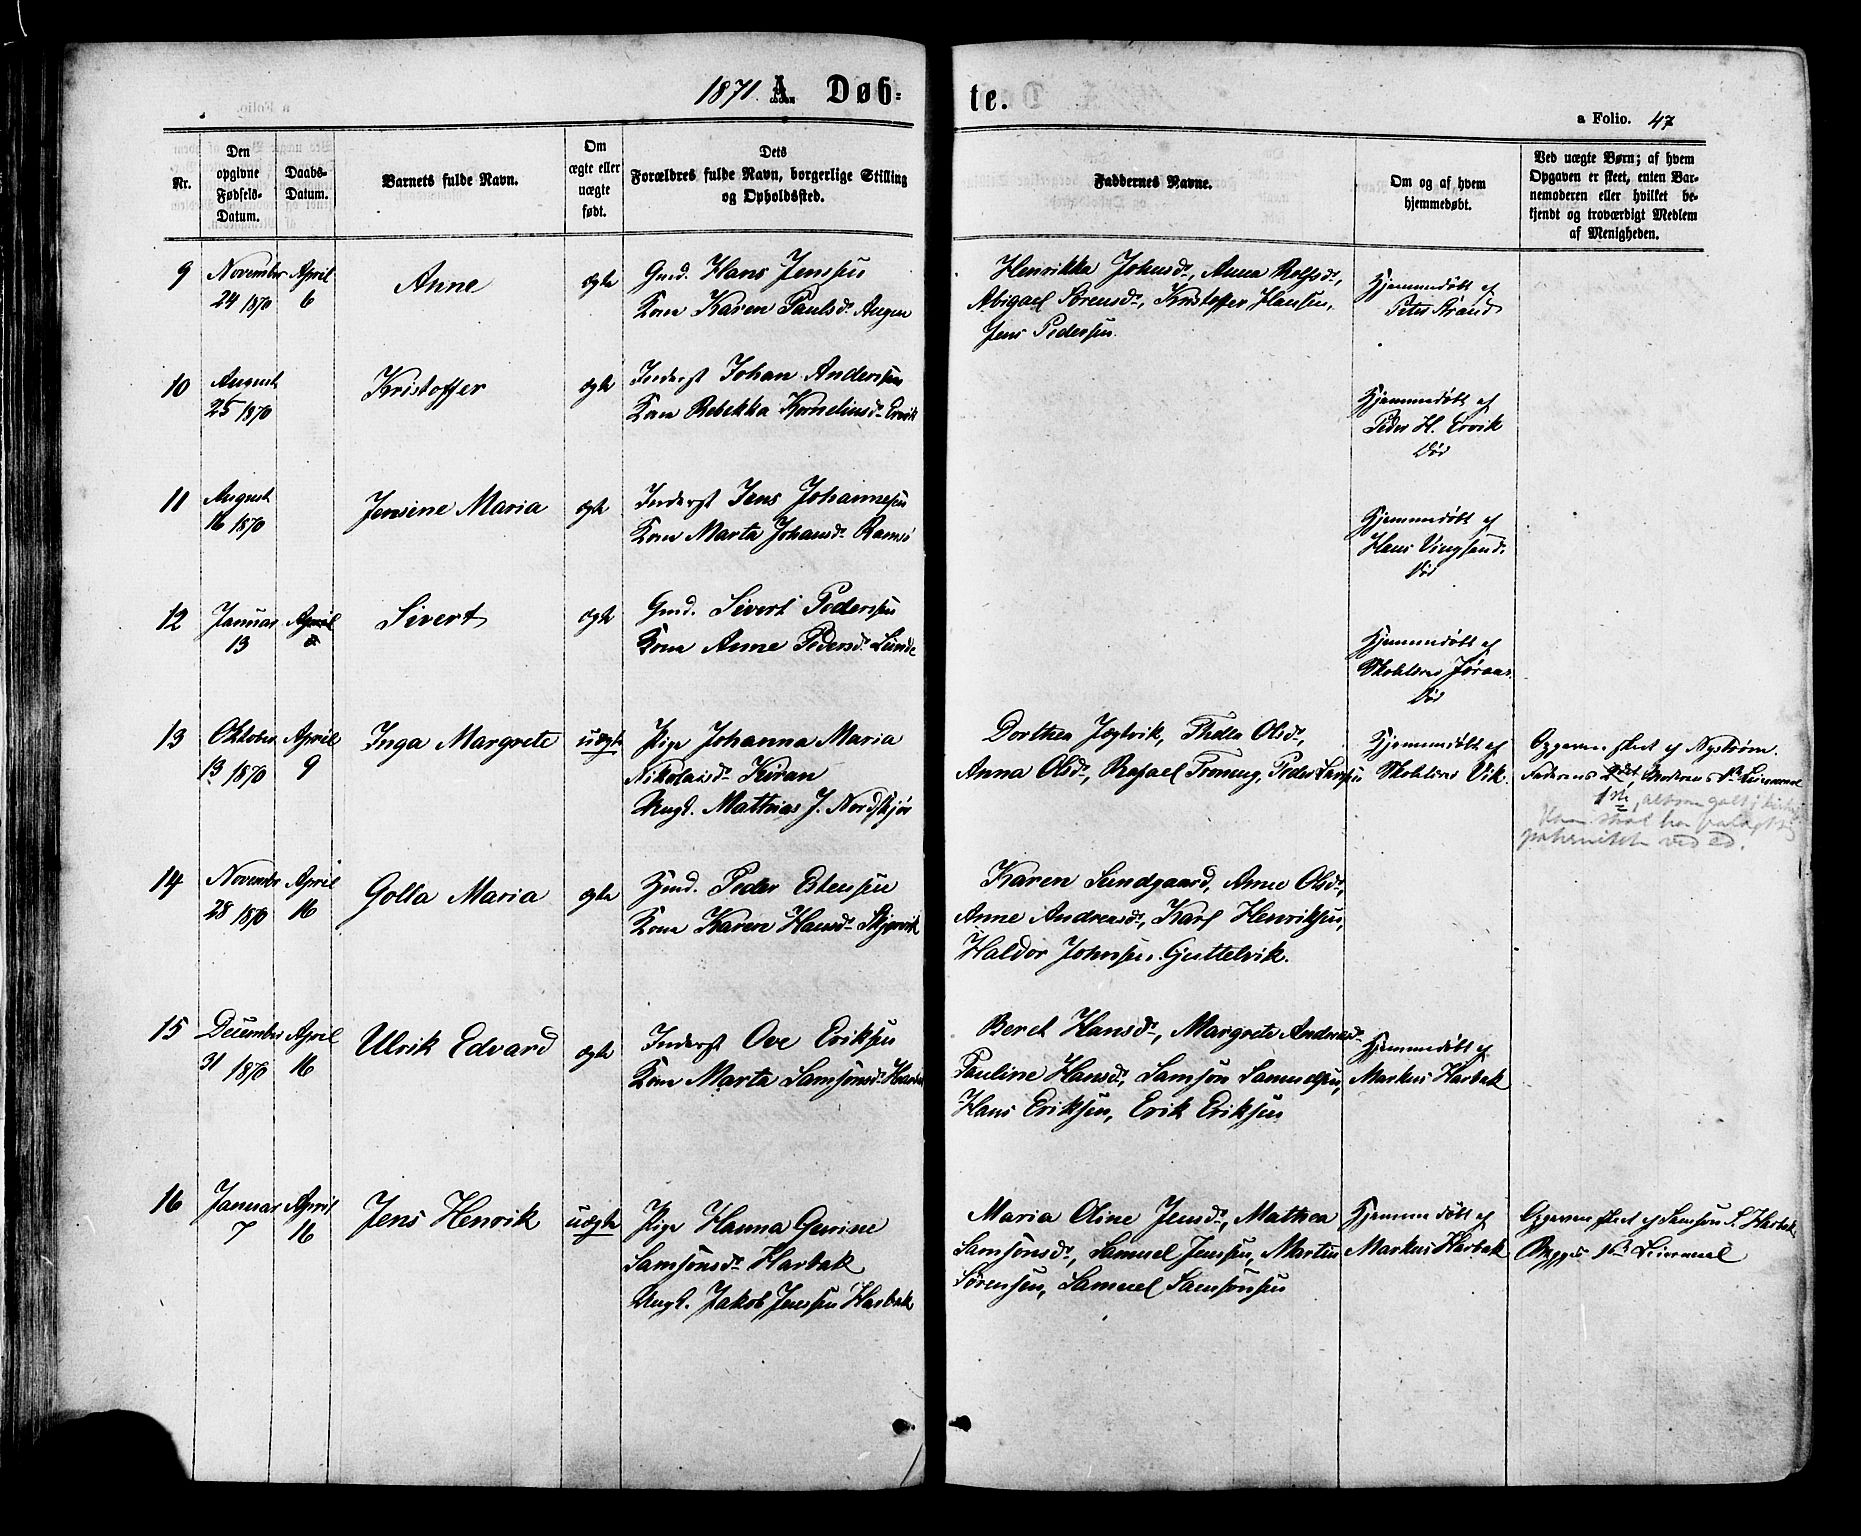 1871. A. Døb-
te.
a Folio. 47
Nr.
Den opgivne Fødsels-Datum.
Daabs-Datum.
Barnets fulde Navn.
Om ægte eller uægte født.
Dets Forældres fulde Navn, borgerlige Stilling og Opholdssted.
Faddernes Navne.
Om og af hvem hjemmedøbt.
Ved uægte Børn; af hvem Opgaven er skeet, enten Barnemoderen eller hvilket bekjendt og troværdigt Medlem af Menigheden.
9 November April Anne ægte Gmd. Hans Jenssen
24 1870 6 Kone Karen Paulsd.
Henrikka Johnsd., Anna Rolfsd.,
Abigael Sørensd., Kristoffer Hansen,
Jens Pedersen.
Hjemmedøbt af
Peter Strand
10 August Kristoffer ægte Inderst Johan Anderssen
25 1870 Kone Rebekka Kornelinsd. Ervik
Hjemmedøbt af
Peder H. Ervik
Død
11 August Jensine Maria ægte Inderst Jens Johannesen
16 1870 Kone Marta Johansd. Ramsø
Hjemmedøbt af
Hans Vingsand.
Død
12 Januar April Sivert ægte Gmd. Sivert Pederssen
13 Kone Anne Pedersd. Lunde
Hjemmedøbt af
Skolelærer
Død
13 Oktober April Inga Margrete uægte Pige Johanna Maria
13 1870 9 Nikolaisd. Kiran
Ungk. Mathias J. Nordskjør
Dorthea Jøssvik, Thelle Olsd.,
Anna Olsd., Rafael Peder Larssen
Hjemmedøbt af
Skolelærer Vik.
Opgaven skeet af Nystrøm.
Faderens 2det, Moderens 1ste Leiermaal
Han skal ha fralagt sig
paterniteten ved ed.
14 November April Golla Maria ægte Hmd. Peder Estensen
28 1870 16 Kone Karen Hansd. Skjervik
Karen Sundgaard, Anne Olsd.,
Anne Andreasd., Karl Henriksen,
Haldor Johnsen Gjettelvik.
15 December April Ulrik Edvard ægte Inderst Ove Eriksen
31 1870 16 Kone Marta Samsonsd. Harbak
Beret Hansd., Margrete Andreasd.
Pauline Hansd., Samson Samuelsen,
Hans Eriksen, Erik Eriksen
Hjemmedøbt af
Markus Harbak
16 Januar April Jens Henrik uægte Pige Hanna Gurine
7 16 Samsonsd. Harbak
Ungk. Jakob Jenssen Harbak
Maria Oline Jensd., Mathea
Samsonsd., Samuel Jenssen, Martin
Sørensen, Samuel Samsonsen
Hjemmedøbt af
Markus Harbak
Opgaven skeet af Samson S. Harbak
Begges 1ste Leiermaal